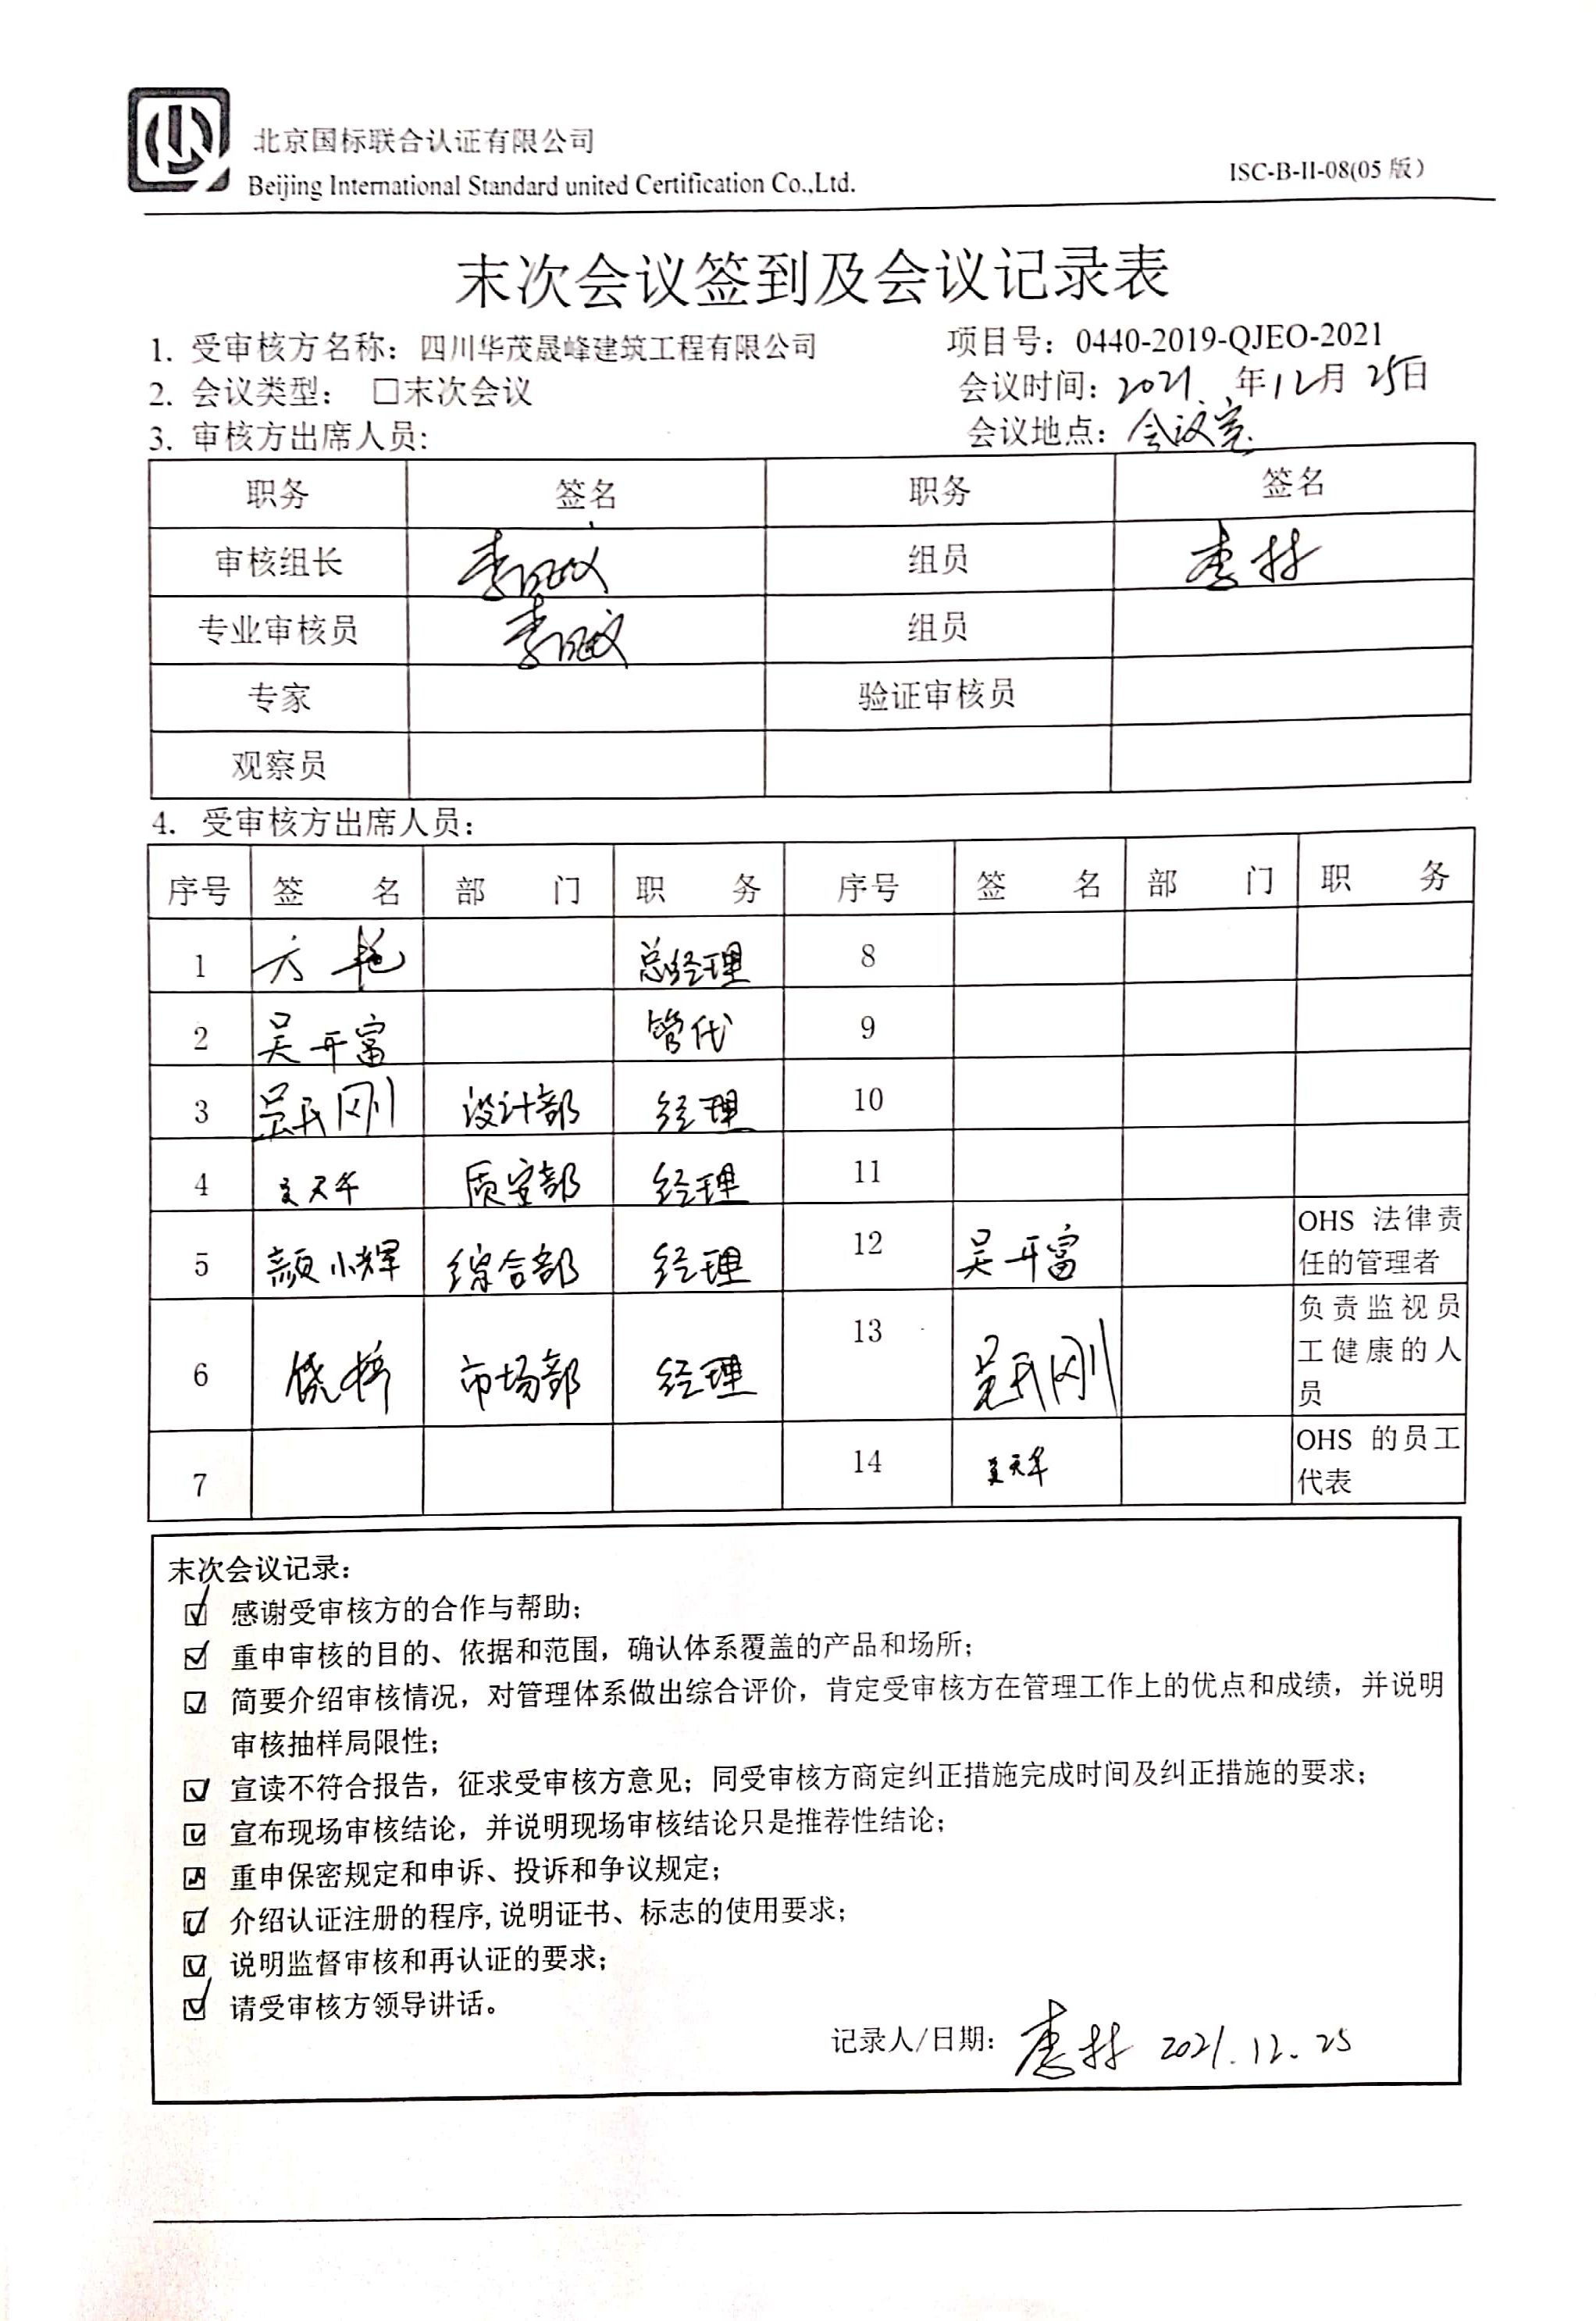 北京国标联合认证有限公司
Beijing International Standard united Certification Co.,Ltd.
ISC-B-II-08(05 版)
末次会议签到及会议记录表
1. 受审核方名称：四川华茂晟峰建筑工程有限公司 项目号：0440-2019-QJEO-2021
2. 会议类型： □末次会议 会议时间：2021 年12月25日
3. 审核方出席人员: 会议地点：会议室
职务 签名 职务 签名
审核组长 组员 李林
专业审核员 组员
专家 验证审核员
观察员
4. 受审核方出席人员:
序号 签 名 部 门 职 务 序号 签 名 部 门 职 务
1 方艳 总经理 8
2 吴开富 管代 9
3 吴氏刚 设计部 经理 10
4 文天华 质安部 经理 11
5 颜小辉 综合部 经理 12 吴开富 OHS 法律责
任的管理者
6 市场部 经理 13 吴氏刚 负责监视员
工健康的人
员
7 14 文天华 OHS 的员工
代表
末次会议记录：
☑ 感谢受审核方的合作与帮助；
☑ 重申审核的目的、依据和范围，确认体系覆盖的产品和场所；
☑ 简要介绍审核情况，对管理体系做出综合评价，肯定受审核方在管理工作上的优点和成绩，并说明
审核抽样局限性；
☑ 宣读不符合报告，征求受审核方意见；同受审核方商定纠正措施完成时间及纠正措施的要求；
☑ 宣布现场审核结论，并说明现场审核结论只是推荐性结论；
☑ 重申保密规定和申诉、投诉和争议规定；
☑ 介绍认证注册的程序,说明证书、标志的使用要求；
☑ 说明监督审核和再认证的要求；
☑ 请受审核方领导讲话。
记录人/日期： 李林 2021.12.25